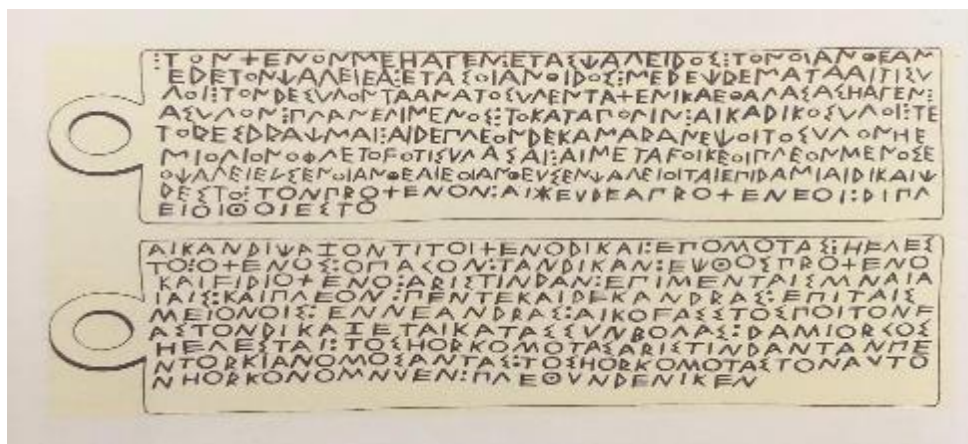 :ΤΟΝ+ΕΝΟΝΜΕΗΑΓΕΝ:ΕΤΑΣΨΑΛΕΙΔΟΣ:ΤΟΝΟΙΑΝΘΕΑΜ
ΕΔΕΤΟΝΨΑΛΕΙΕΑ:ΕΤΑΣΟΙΑΝΘΙΔΟΣ:ΜΕΔΕΨΡΕΜΑΤΑΑΙΤΙΣΥ
ΛΟΙ:ΤΟΝΔΕΣΥΛΟΝΤΑΑΝΑΤΟΣΥΛΕΝΤΑ+ΕΝΙΚΑΕΘΑΛΑΣΑΣΗΑΓΕΝ:
ΑΣΥΛΟΝ:ΠΛΑΝΕΛΙΜΕΝΟΣ:ΤΟΚΑΤΑΠΟΛΙΝ:ΑΙΚΑΔΙΚΟΣΥΛΟΙ:ΤΕ
ΤΟΡΕΣΔΡΑΨΜΑΙ:ΑΙΔΕΠΛΕΟΝΔΕΚΑΜΑΡΑΝΕΨΟΙΤΟΣΥΛΟΝΗΕ
ΜΙΟΛΙΟΝΟΦΛΕΤΟϜΟΤΙΣΥΛΑΣΑΙ:ΑΙΜΕΤΑϜΟΙΚΕΟΙΠΛΕΟΝΜΕΝΟΣΕ
ΟΨΑΛΕΙΕΥΣΕΝΟΙΑΝΘΕΑΙΕΟΙΑΝΘΕΥΣΕΝΨΑΛΕΙΟΙΤΑΙΕΠΙΔΑΜΙΑΙΔΙΚΑΙΨ
ΡΕΣΤΟ:ΤΟΝΠΡΟ+ΕΝΟΝ:ΑΙЖΕΥΔΕΑΠΡΟ+ΕΝΕΟΙ:ΔΙΠΛ
ΕΙΟΙΘΟΙΕΣΤΟ
ΑΙΚΑΝΔΙΨΑΖΟΝΤΙΤΟΙ+ΕΝΟΔΙΚΑΙ:ΕΠΟΜΟΤΑΣ:ΗΕΛΕΣ
ΤΟ:Ο+ΕΝΟΣ:ΟΠΑΓΟΝ:ΤΑΝΔΙΚΑΝ:ΕΨΘΟΣΠΡΟ+ΕΝΟ
ΚΑΙϜΙΔΙΟ+ΕΝΟ:ΑΡΙΣΤΙΝΔΑΝ:ΕΠΙΜΕΝΤΑΙΣΜΝΑΙΑ
ΙΑΙΣ:ΚΑΙΠΛΕΟΝ:ΠΕΝΤΕΚΑΙΔΕΚΑΝΔΡΑΣ:ΕΠΙΤΑΙΣ
ΜΕΙΟΝΟΙΣ:ΕΝΝΕΑΝΔΡΑΣ:ΑΙΚΟϜΑΣΣΤΟΣΠΟΙΤΟΝϜ
ΑΣΤΟΝΔΙΚΑΖΕΤΑΙΚΑΤΑΣΣΥΝΒΟΛΑΣ:ΔΑΜΙΟΡΓΟΣ
ΗΕΛΕΣΤΑΙ:ΤΟΣΗΟΡΚΟΜΟΤΑΣΑΡΙΣΤΙΝΔΑΝΤΑΝΠΕ
ΝΤΟΡΚΙΑΝΟΜΟΣΑΝΤΑΣ:ΤΟΣΗΟΡΚΟΜΟΤΑΣΤΟΝΑΥΤΟ
ΝΗΟΡΚΟΝΟΜΝΥΕΝ:ΠΛΕΘΥΝΔΕΝΙΚΕΝ